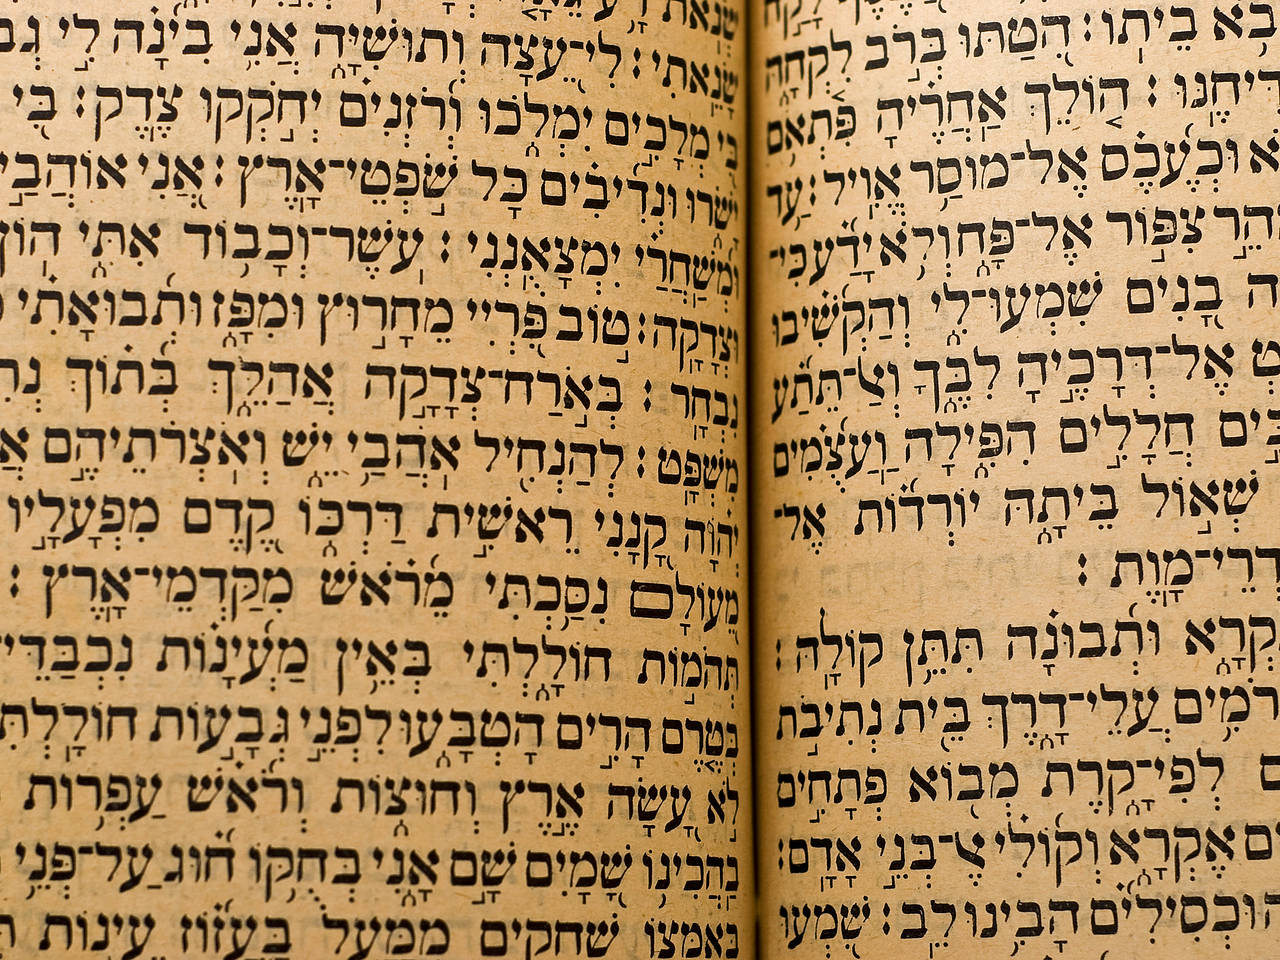 בָא בֵיתוֹ׃ הִטַּתּוּ בְּרֹב לִקְחָהּ
דִּיחֶנּוּ ׃ הוֹלֵךְ אַחֲרֶיהָ פִּתְאֹם
וּכְעֶכֶס אֶל־מוּסַר אֱוִיל׃ עַד
הֵר צִפּוֹר אֶל־פָּח וְלֹא־יָדַע כִּי־
ה בָנִים שִׁמְעוּ־לִי וְהַקְשִׁיבוּ
ט אֶל־דְּרָכֶיהָ לִבֶּךָ וְאַל־תֵּתַע
בִּים חֲלָלִים הִפִּילָה וַעֲצֻמִים
שְׁאוֹל בֵּיתָהּ יוֹרְדוֹת אֶל־
דְרֵי־מָוֶת ׃
קְרָא וּתְבוּנָה תִּתֵּן קוֹלָהּ׃
רֹמִים עֲלֵי־דָרֶךְ בֵּית נְתִיבֹת
ם לְפִי־קָרֶת מְבוֹא פְתָחִים
ם אֶקְרָא וְקוֹלִי אֶל־בְּנֵי אָדָם׃
וּכְסִילִים הָבִינוּ לֵב ׃ שִׁמְעוּ
שָׂנֵאתִי ׃ לִי־עֵצָה וְתוּשִׁיָּה אֲנִי בִינָה לִי
בִּי מְלָכִים יִמְלֹכוּ וְרֹזְנִים יְחֹקְקוּ צֶדֶק ׃ בִּי
יָשֹׂרוּ וּנְדִיבִים כָּל שֹׁפְטֵי־אָרֶץ ׃ אֲנִי אוֹהֲבַי
וּמְשַׁחֲרַי יִמְצָאֻנְנִי ׃ עֹשֶׁר־וְכָבוֹד אִתִּי הוֹן
וּצְדָקָה ׃ טוֹב פִּרְיִי מֵחָרוּץ וּמִפָּז וּתְבוּאָתִי
נִבְחָר ׃ בְּאֹרַח־צְדָקָה אֲהַלֵּךְ בְּתוֹךְ
מִשְׁפָּט ׃ לְהַנְחִיל אֹהֲבַי יֵשׁ וְאֹצְרֹתֵיהֶם
יְהוָה קָנָנִי רֵאשִׁית דַּרְכּוֹ קֶדֶם מִפְעָלָיו
מֵעוֹלָם נִסַּכְתִּי מֵרֹאשׁ מִקַּדְמֵי־אָרֶץ ׃
תְּהֹמוֹת חוֹלָלְתִּי בְּאֵין מַעְיָנוֹת נִכְבַּדֵּי־
בְּטֶרֶם הָרִים הָטְבָּעוּ לִפְנֵי גְבָעוֹת חוֹלָלְתִּ
לֹא עָשָׂה אֶרֶץ וְחוּצוֹת וְרֹאשׁ עַפְרוֹת
בַּהֲכִינוֹ שָׁמַיִם שָׁם אָנִי בְּחֻקוֹ חוּג עַל־פְּנֵי
בְּאַמְּצוֹ שְׁחָקִים מִמָּעַל בַּעֲזוֹז עִינוֹת